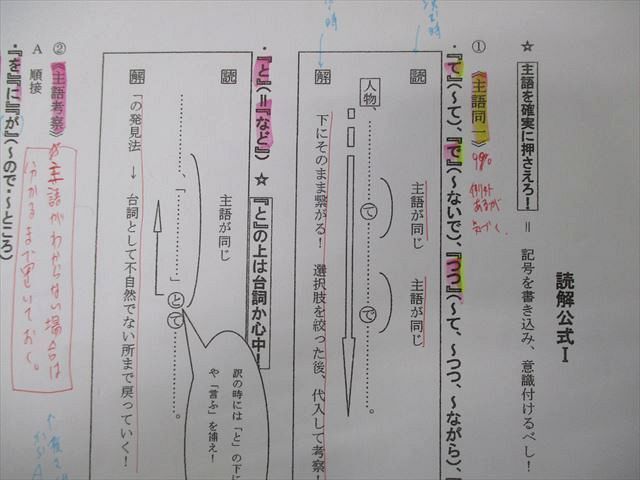 読解公式Ⅰ
☆ 主語を確実に押さえろ! = 記号を書き込み、意識付けるべし!
①《主語同一》
98%
例外
あるが
気づく。
・『て』(~て)、『で』(~ないで)、『つつ』(~て、~つつ、~ながら)、
読
主語が同じ
主語が同じ
人物、………て………で………。
解 下にそのまま繋がる! 選択肢を絞った後、代入して考察!
・『と』(=『など』) ☆『と』の上は台詞か心中!
読
主語が同じ
………、「………」とて………。
訳の時には「と」の下に
や「言ふ」を補え!
解 「の発見法 → 台詞として不自然でない所まで戻っていく!
②《主語考察》
主語がわからない場合は
分かるまで置いておく。
A 順接
・『を』『に』『が』(~ので・~ところ)